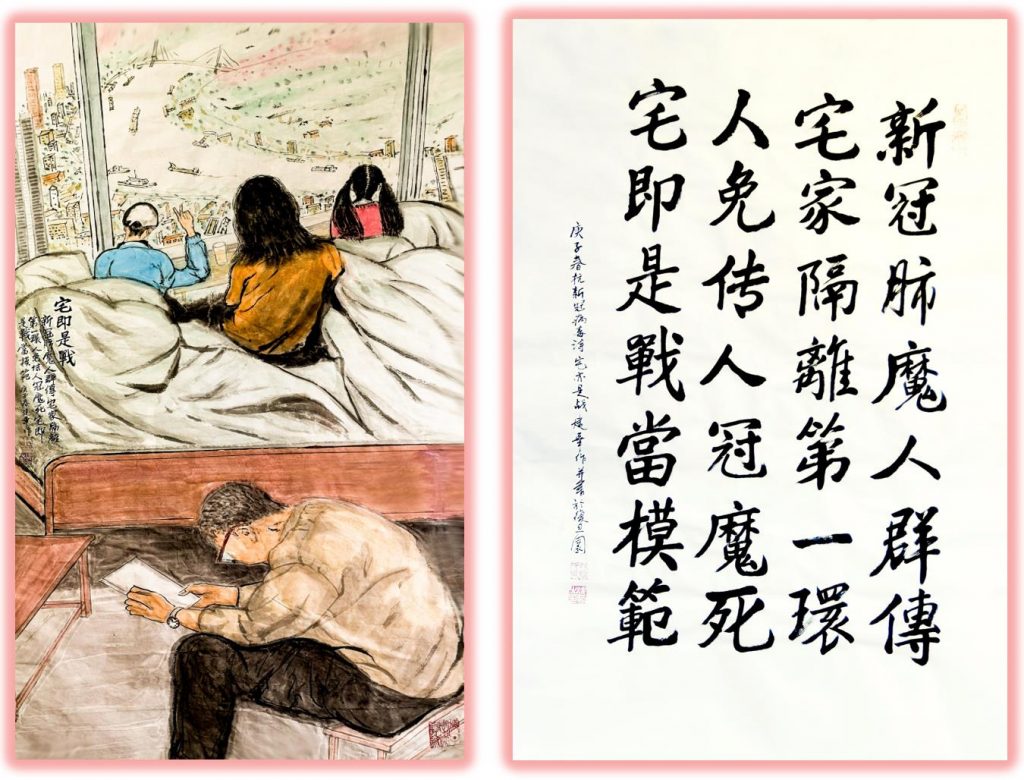 宅即是戰
新冠肺魔人群傳宅家隔離
第一環人免传人冠魔死宅即
是戰當模範
新冠肺魔人群傳
宅家隔離第一環
人免传人冠魔死
宅即是戰當模範
庚子春抗新冠病毒 宅亦是战 作并書於復旦園